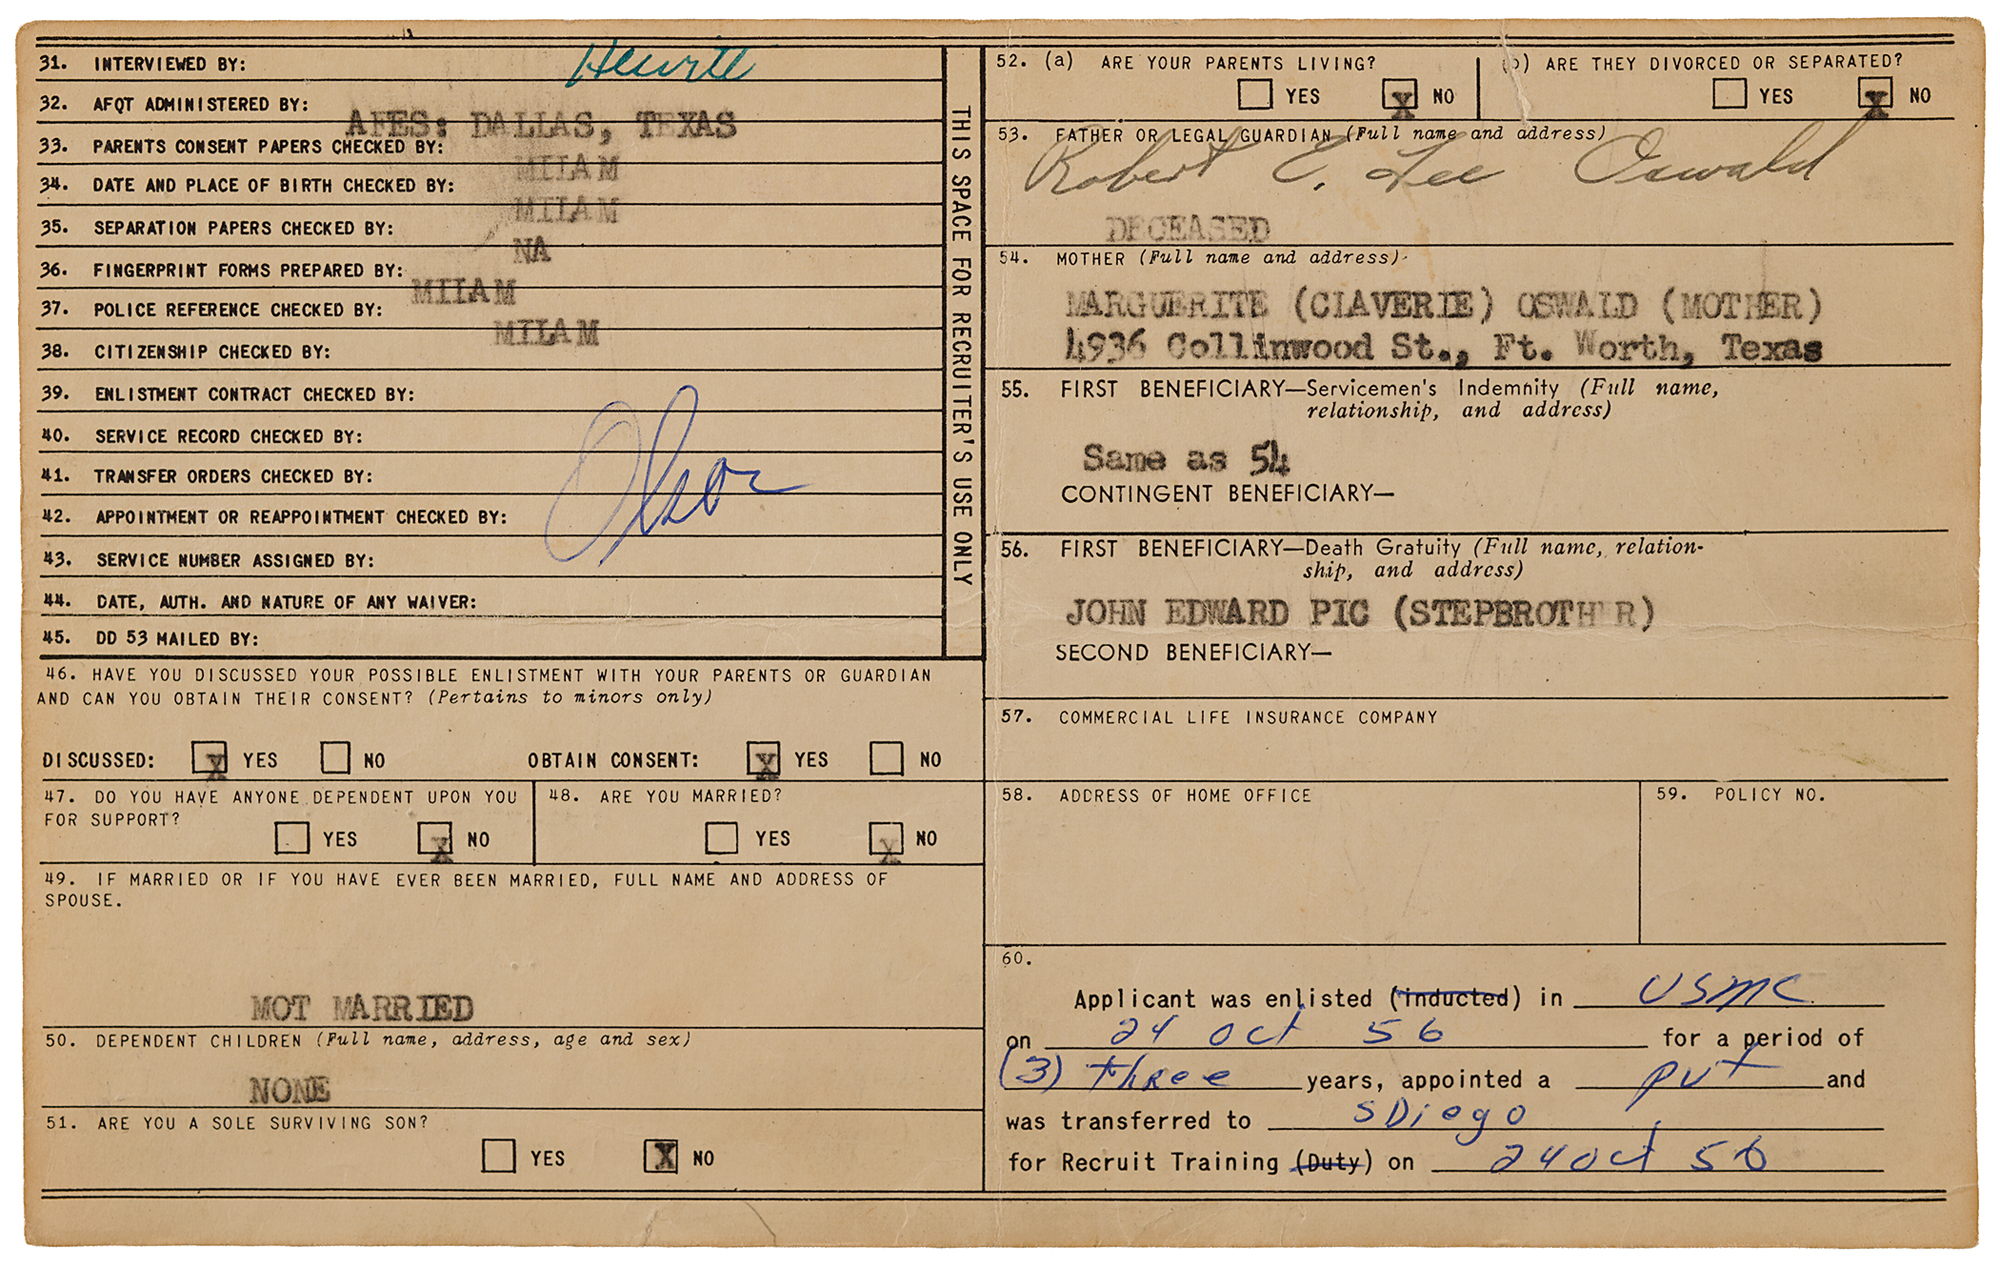 31. INTERVIEWED BY:
32. AFQT ADMINISTERED BY:
AFES: DALLAS, TEXAS
33. PARENTS CONSENT PAPERS CHECKED BY:
MILAM
34. DATE AND PLACE OF BIRTH CHECKED BY:
MILAM
35. SEPARATION PAPERS CHECKED BY:
NA
36. FINGERPRINT FORMS PREPARED BY:
MILAM
37. POLICE REFERENCE CHECKED BY:
MILAM
38. CITIZENSHIP CHECKED BY:
39. ENLISTMENT CONTRACT CHECKED BY:
40. SERVICE RECORD CHECKED BY:
41. TRANSFER ORDERS CHECKED BY:
Olson
42. APPOINTMENT OR REAPPOINTMENT CHECKED BY:
43. SERVICE NUMBER ASSIGNED BY:
44. DATE, AUTH. AND NATURE OF ANY WAIVER:
45. DD 53 MAILED BY:
THIS SPACE FOR RECRUITER'S USE ONLY
46. HAVE YOU DISCUSSED YOUR POSSIBLE ENLISTMENT WITH YOUR PARENTS OR GUARDIAN
AND CAN YOU OBTAIN THEIR CONSENT? (Pertains to minors only)
DISCUSSED: X YES NO OBTAIN CONSENT: X YES NO
47. DO YOU HAVE ANYONE DEPENDENT UPON YOU
FOR SUPPORT?
YES X NO
48. ARE YOU MARRIED?
YES X NO
49. IF MARRIED OR IF YOU HAVE EVER BEEN MARRIED, FULL NAME AND ADDRESS OF
SPOUSE.
MOT MARRIED
50. DEPENDENT CHILDREN (Full name, address, age and sex)
NONE
51. ARE YOU A SOLE SURVIVING SON?
YES X NO
52. (a) ARE YOUR PARENTS LIVING?
YES X NO
(b) ARE THEY DIVORCED OR SEPARATED?
YES X NO
53. FATHER OR LEGAL GUARDIAN (Full name and address)
Robert E. Lee Oswald
DECEASED
54. MOTHER (Full name and address)
MARGUERITE (CLAVERIE) OSWALD (MOTHER)
4936 Collinwood St., Ft. Worth, Texas
55. FIRST BENEFICIARY—Servicemen's Indemnity (Full name,
relationship, and address)
Same as 54
CONTINGENT BENEFICIARY—
56. FIRST BENEFICIARY—Death Gratuity (Full name, relation-
ship, and address)
JOHN EDWARD PIC (STEPBROTHER)
SECOND BENEFICIARY—
57. COMMERCIAL LIFE INSURANCE COMPANY
58. ADDRESS OF HOME OFFICE
59. POLICY NO.
60.
Applicant was enlisted (inducted) in USMC
on 24 Oct 56 for a period of
(3) three years, appointed a pvt and
was transferred to SDiego
for Recruit Training (Duty) on 24 Oct 56